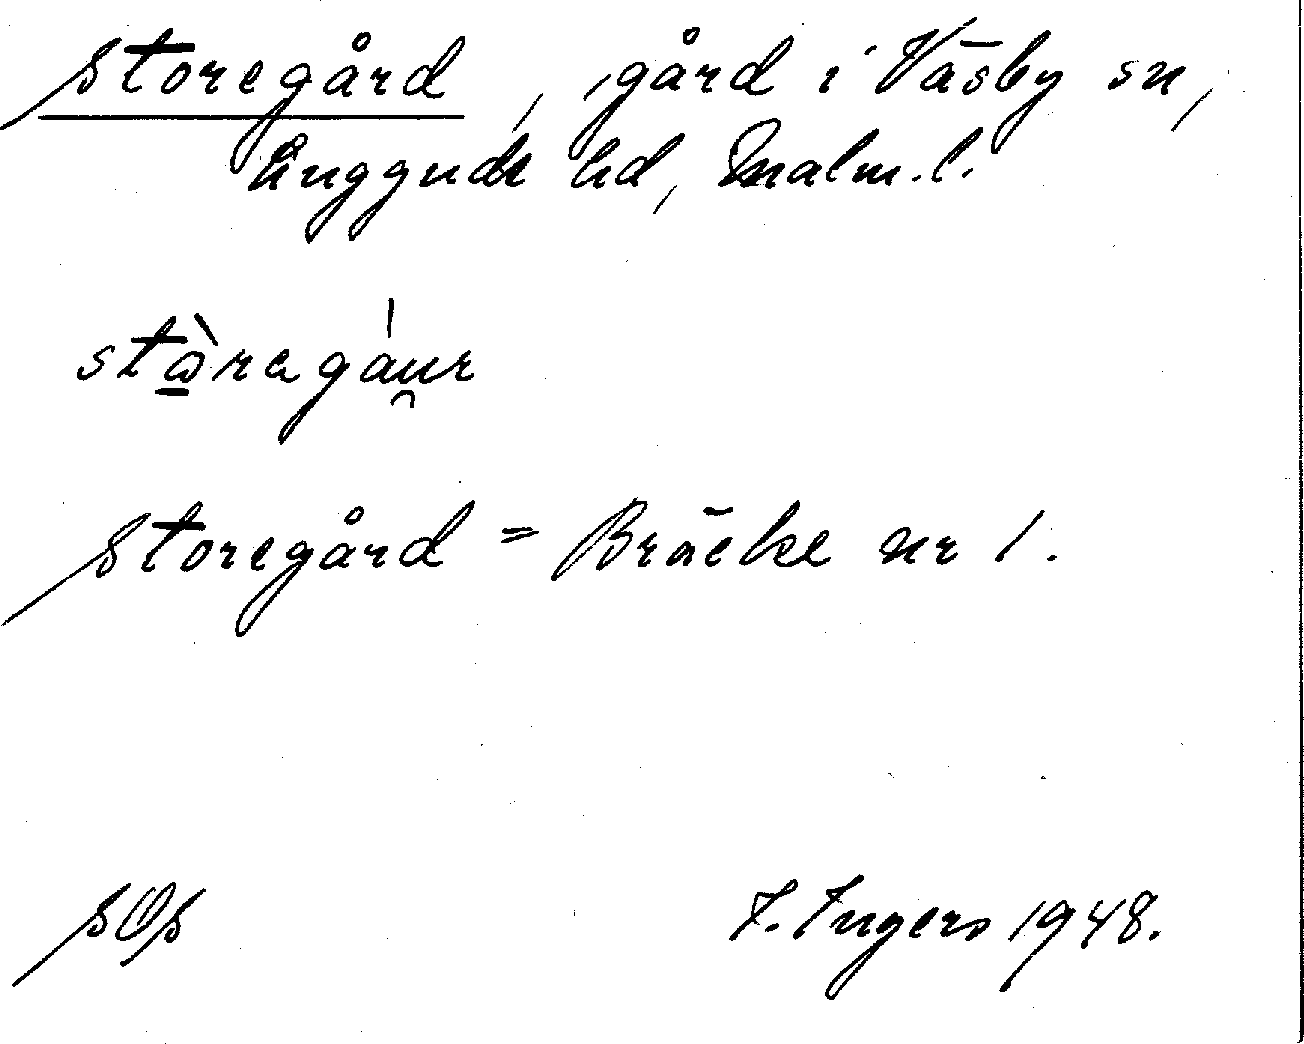 Storegård, gård i Väsby sn,
Luggude hd, Malm. l.
Storegård = Bräcke nr 1.
SOS I. Ingers 1948.